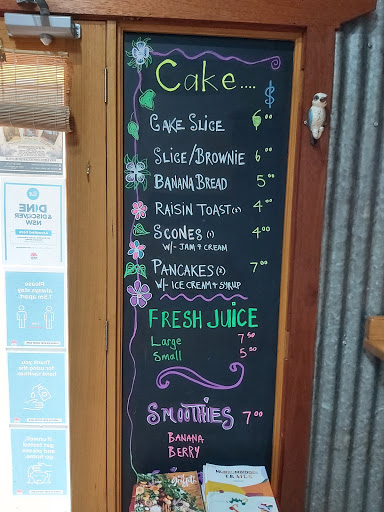 Cake....
$
CAKE SLICE 6.00
SLICE/BROWNIE 6.00
BANANA BREAD 5.00
RAISIN TOAST(2) 4.00
SCONES (1) 4.00
W/- JAM & CREAM
PANCAKES (2) 7.00
W/- ICE CREAM + SYRUP
FRESH JUICE
Large 7.50
Small 5.00
SMOOTHIES 7.00
BANANA
BERRY
DINE
& DISCOVER
NSW
Please
always stay
1.5m apart.
Thank you